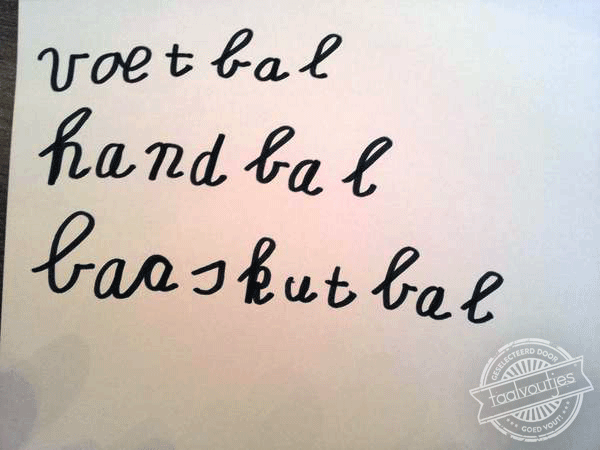 voetbal
handbal
baaskutbal
GESELECTEERD DOOR
taalvoutjes
GOED VOUT!